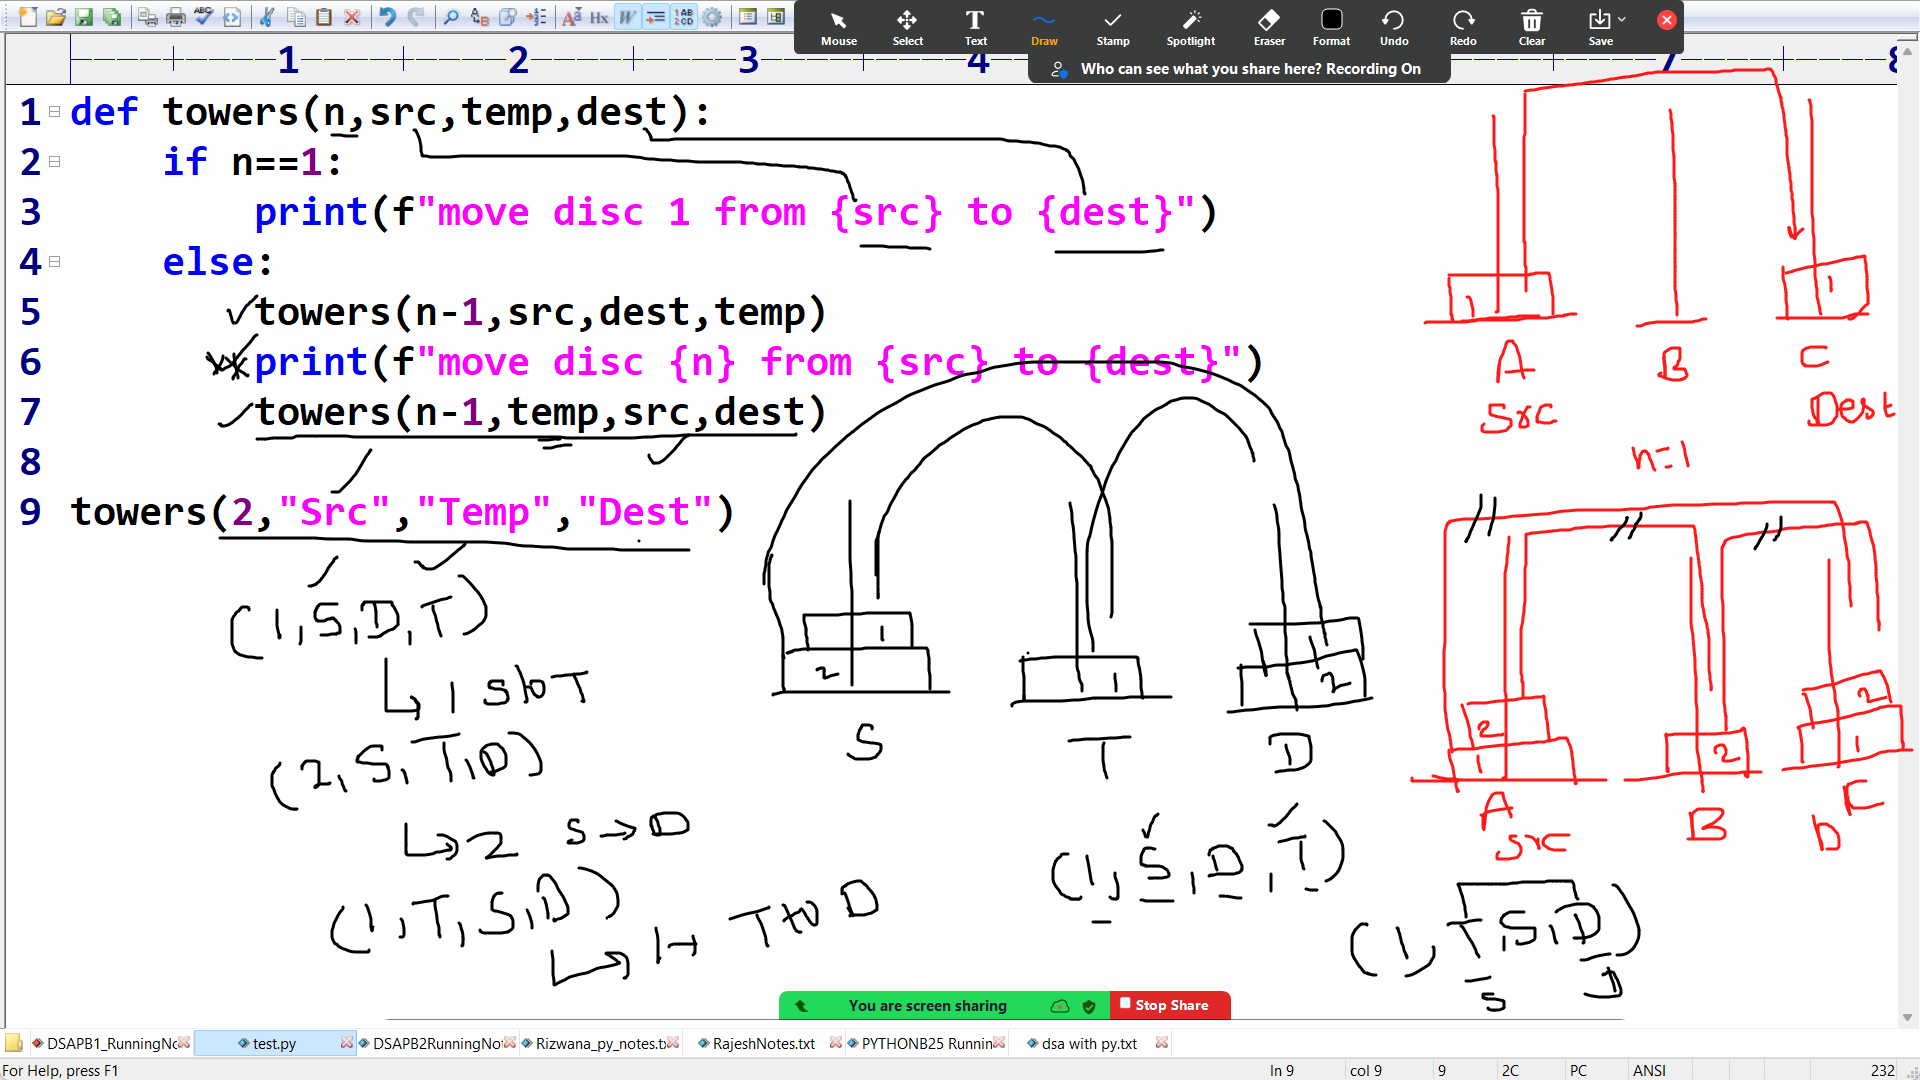 Mouse Select Text Draw Stamp Spotlight Eraser Format Undo Redo Clear Save
Who can see what you share here? Recording On
1 2 3 4 7 8
1 def towers(n,src,temp,dest):
2 if n==1:
3 print(f"move disc 1 from {src} to {dest}")
4 else:
5 towers(n-1,src,dest,temp)
6 print(f"move disc {n} from {src} to {dest}")
7 towers(n-1,temp,src,dest)
8
9 towers(2,"Src","Temp","Dest")
(1,S,D,T)
1 S to T
(2,S,T,D)
2 S → D
(1,T,S,D)
1 → T to D
1
2
S
1
T
1
2
D
(1,S,D,T)
(1,T,S,D)
S D
1
1
A B C
Src Dest
n=1
2
1
2
2
1
A B C
Src D
You are screen sharing Stop Share
DSAPB1_RunningNo test.py DSAPB2RunningNot Rizwana_py_notes.tx RajeshNotes.txt PYTHONB25 Runnin dsa with py.txt
For Help, press F1 ln 9 col 9 9 2C PC ANSI 232